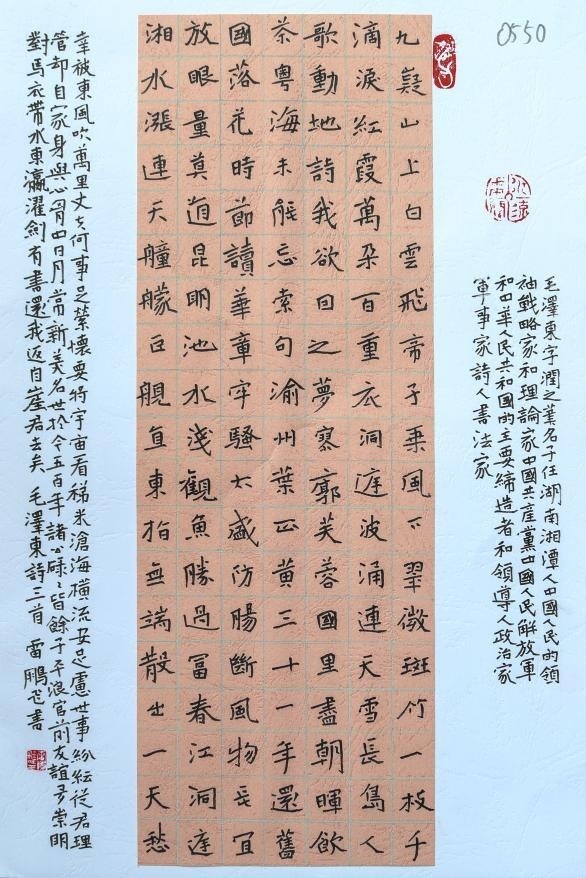 0550
毛澤東字潤之筆名子任湖南湘潭人中國人民的領
袖戰略家和理論家中國共產黨中國人民解放軍
和中華人民共和國的主要締造者和領導人政治家
軍事家詩人書法家
九嶷山上白雲飛帝子乘風下翠微斑竹一枝千
滴淚紅霞萬朵百重衣洞庭波涌連天雪長島人
歌動地詩我欲因之夢寥廓芙蓉國里盡朝暉飲
茶粵海未能忘索句渝州葉正黃三十一年還舊
國落花時節讀華章牢騷太盛防腸斷風物長宜
放眼量莫道昆明池水淺觀魚勝過富春江洞庭
湘水漲連天艟艨巨艦直東指無端散出一天愁
幸被東風吹萬里丈夫何事足縈懷要將宇宙看稊米滄海橫流安足慮世事紛紜從君理
管却自家身與心胸中日月常新美名世於今五百年諸公碌〻皆餘子平浪宮前友誼多崇明
對馬衣帶水東瀛濯劍有書還我返自崖君去矣 毛澤東詩三首 雷鵬飛書